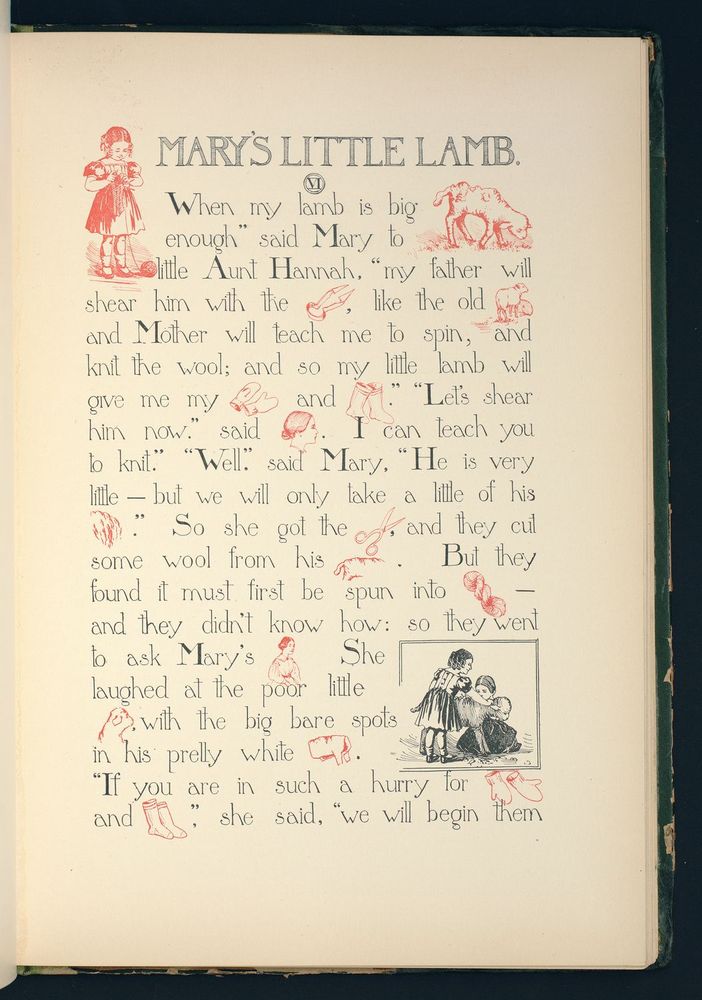 MARY'S LITTLE LAMB.
VI
When my lamb is big
enough" said Mary to
little Aunt Hannah, "my father will
shear him with the , like the old
and Mother will teach me to spin, and
knit the wool; and so my little lamb will
give me my and ." "Let's shear
him now." said . I can teach you
to knit." "Well." said Mary, "He is very
little — but we will only take a little of his
." So she got the , and they cut
some wool from his . But they
found it must first be spun into —
and they didn't know how: so they went
to ask Mary's She
laughed at the poor little
, with the big bare spots
in his pretty white .
"If you are in such a hurry for
and ," she said, "we will begin them